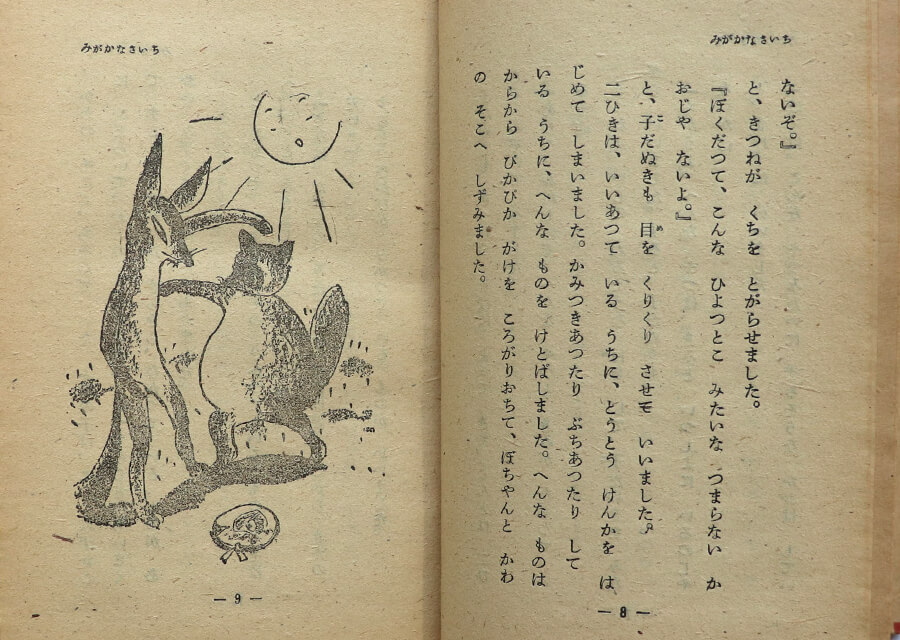 みがかなさいち
ないぞ。』
と、きつねが くちを とがらせました。
『ぼくだつて、こんな ひよつとこ みたいな つまらない か
おじや ないよ。』
と、子だぬきも 目を くりくり させて いいました。
こ
め
二ひきは、いいあつて いる うちに、とうとう けんかを は
じめて しまいました。かみつきあつたり ぶちあつたり して
いる うちに、へんな ものを けとばしました。へんな ものは
からから ぴかぴか がけを ころがりおちて、ぽちやんと かわ
の そこへ しずみました。
— 8 —
みがかなさいち
— 9 —